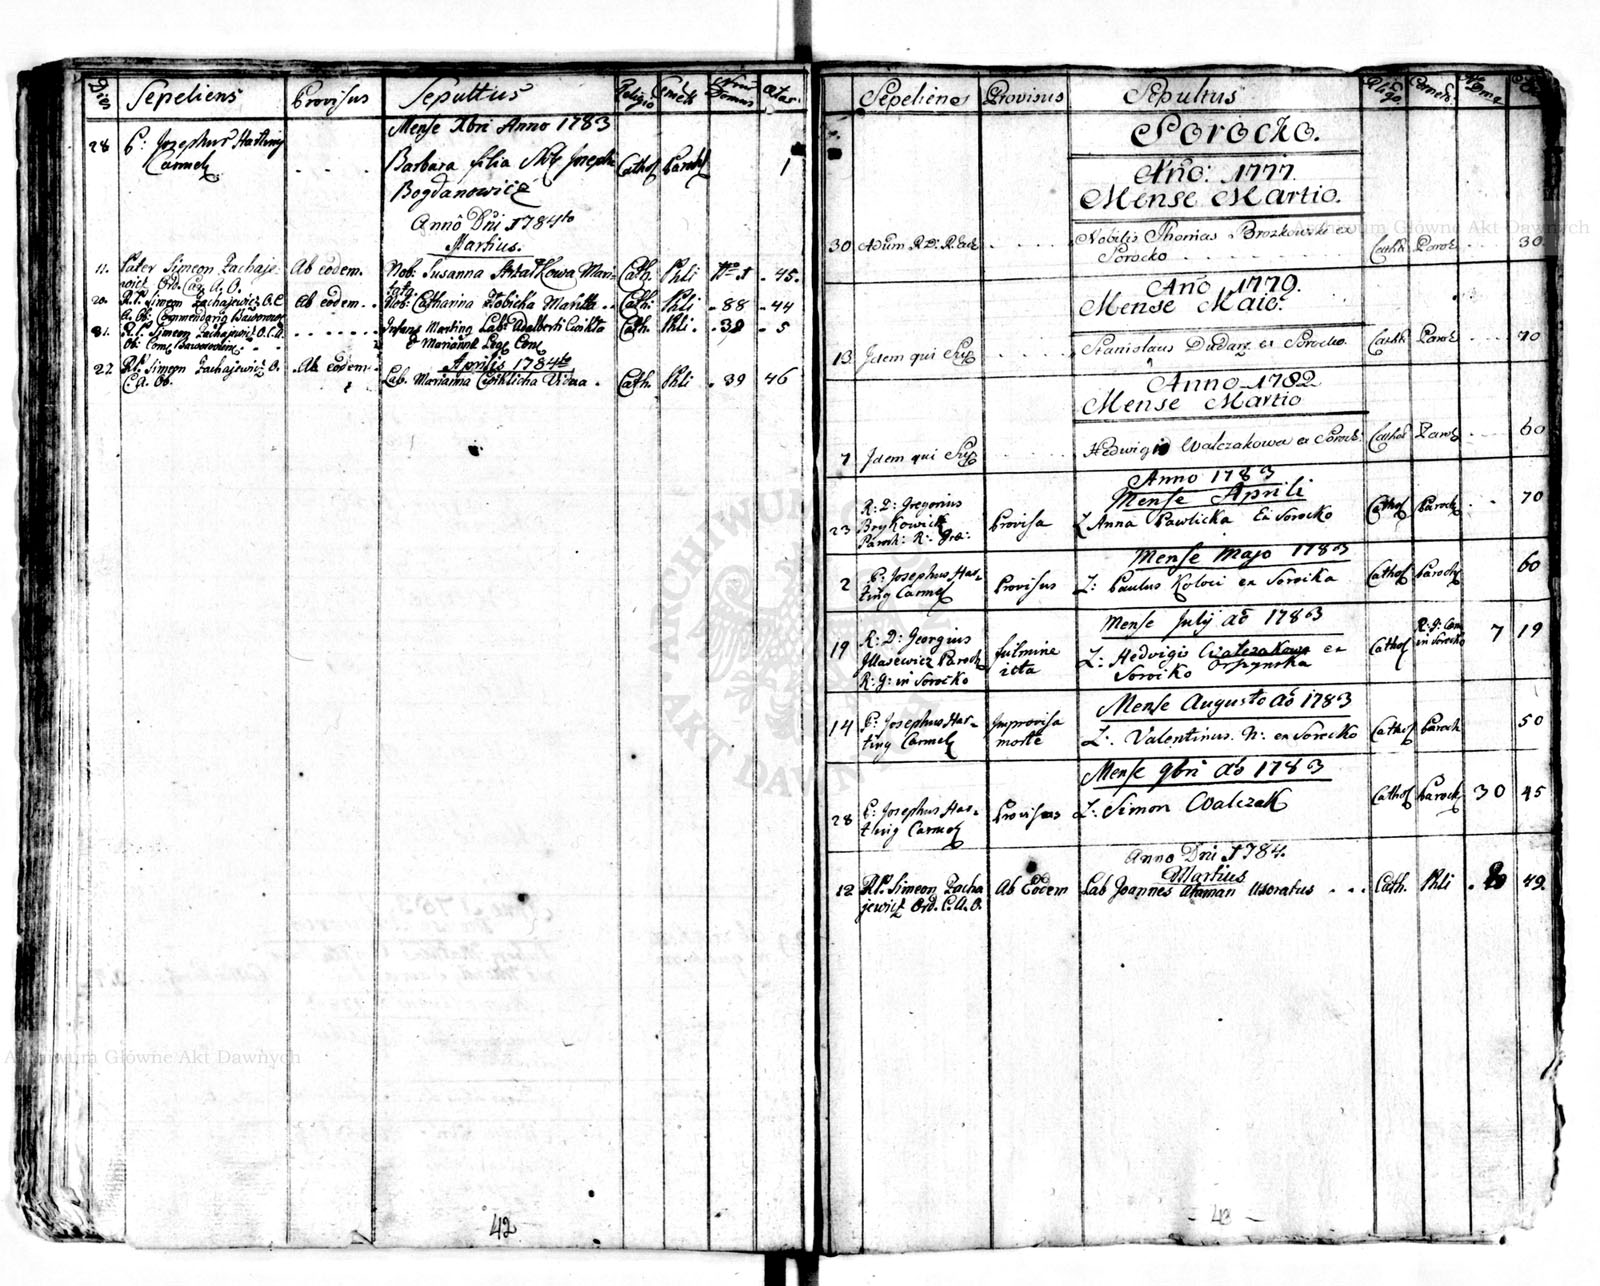 Dies Sepeliens Provisus Sepultus Religio Cemet: Nrus Domus Ætas
Mense Xbri Anno 1783
28 P: Josephus Harting
Carmel
. . . . Barbara filia Nob Joseph
Cathol Paroch 1
Bogdanowicz
Anno Dni 1784to
Martius.
11. Pater Simeon Zachaje-
wicz Ord. Car. A. O.
Ab eodem. Nob: Susanna Mari-
tata
Cath: Phli Nro 1 - 45.
20. R.P. Simeon Zachajewicz O. C.
A. Ob: Commendarig Baworow
Ab eodem. Nob: Catharina Maritta . . Cath: Phli - 88 - 44
31. R.P. Simeon Zachajewicz O. C. A.
Ob: Com:
. . . . . . Infans Marting Lab: Adalberti Cwikla
& Marianna Leg. Con:
Cath. Phli . - 39 - 5
Aprilis 1784to
22 R.P. Simeon Zachajewicz O.
C. A. Ob.
Ab eodem. Lab. Marianna Cwiklicha Vidua . Cath. Phli - 39 46
42
Sepeliens Provisus Sepultus Religio Cemet: No Dom
Sorocko.
Año: 1777.
Mense Martio.
30 Adum R: D: R.
. . . . . Nobilis Thomas Brozkowski ex
Sorocko . . . . . . . .
Cathl Paroch . . . 30
Año 1779.
Mense Maio.
13 Idem qui Sup . . . . . Stanislaus Dudarz ex Sorocko. Cathl Paroch . . . 70
Anno 1782
Mense Martio
7 Idem qui Sup . . . . . Hedwigis Walczakowa ex Sorock: Cathol Paroch . . . 60
Anno 1783
Mense Aprili
23 R: D: Gregorius
Brykowicz
Paroch: R: Græ:
Provisa L Anna Pawlicka Ex Sorocko Cathol Paroch . . 70
Mense Majo 1783
2 P: Josephus Har-
ting Carmel
Provisus L: Paulus Koloci ex Sorocka Cathol Paroch 60
Mense Julij aõ 1783
19 R: D: Georgius
Illasewicz Paroch
R: G: in Sorocko
fulmine
icta
L: Hedvigis Walczakowa ex
Sorocko
Cathol R: G: Cem
in Sorocko
7 19
Mense Augusto aõ 1783
14 P: Josephus Har-
ting Carmel
Improvisa
morte
L: Valentinus. N: ex Sorocko Cathol Paroch 50
Mense 9bri aõ 1783
28 P: Josephus Har-
ting Carmel
Provisus L: Simon Walczak Cathol Paroch 30 45
Anno Dni 1784.
Martius
12 R.P. Simeon Zacha
jewicz Ord. C. A. O.
Ab Eodem Lab Joannes Ataman Uxoratus . . . Cath. Phli 49.
- 43 -
ARCHIWUM GŁÓWNE AKT DAWNYCH
Archiwum Główne Akt Dawnych
Archiwum Główne Akt Dawnych